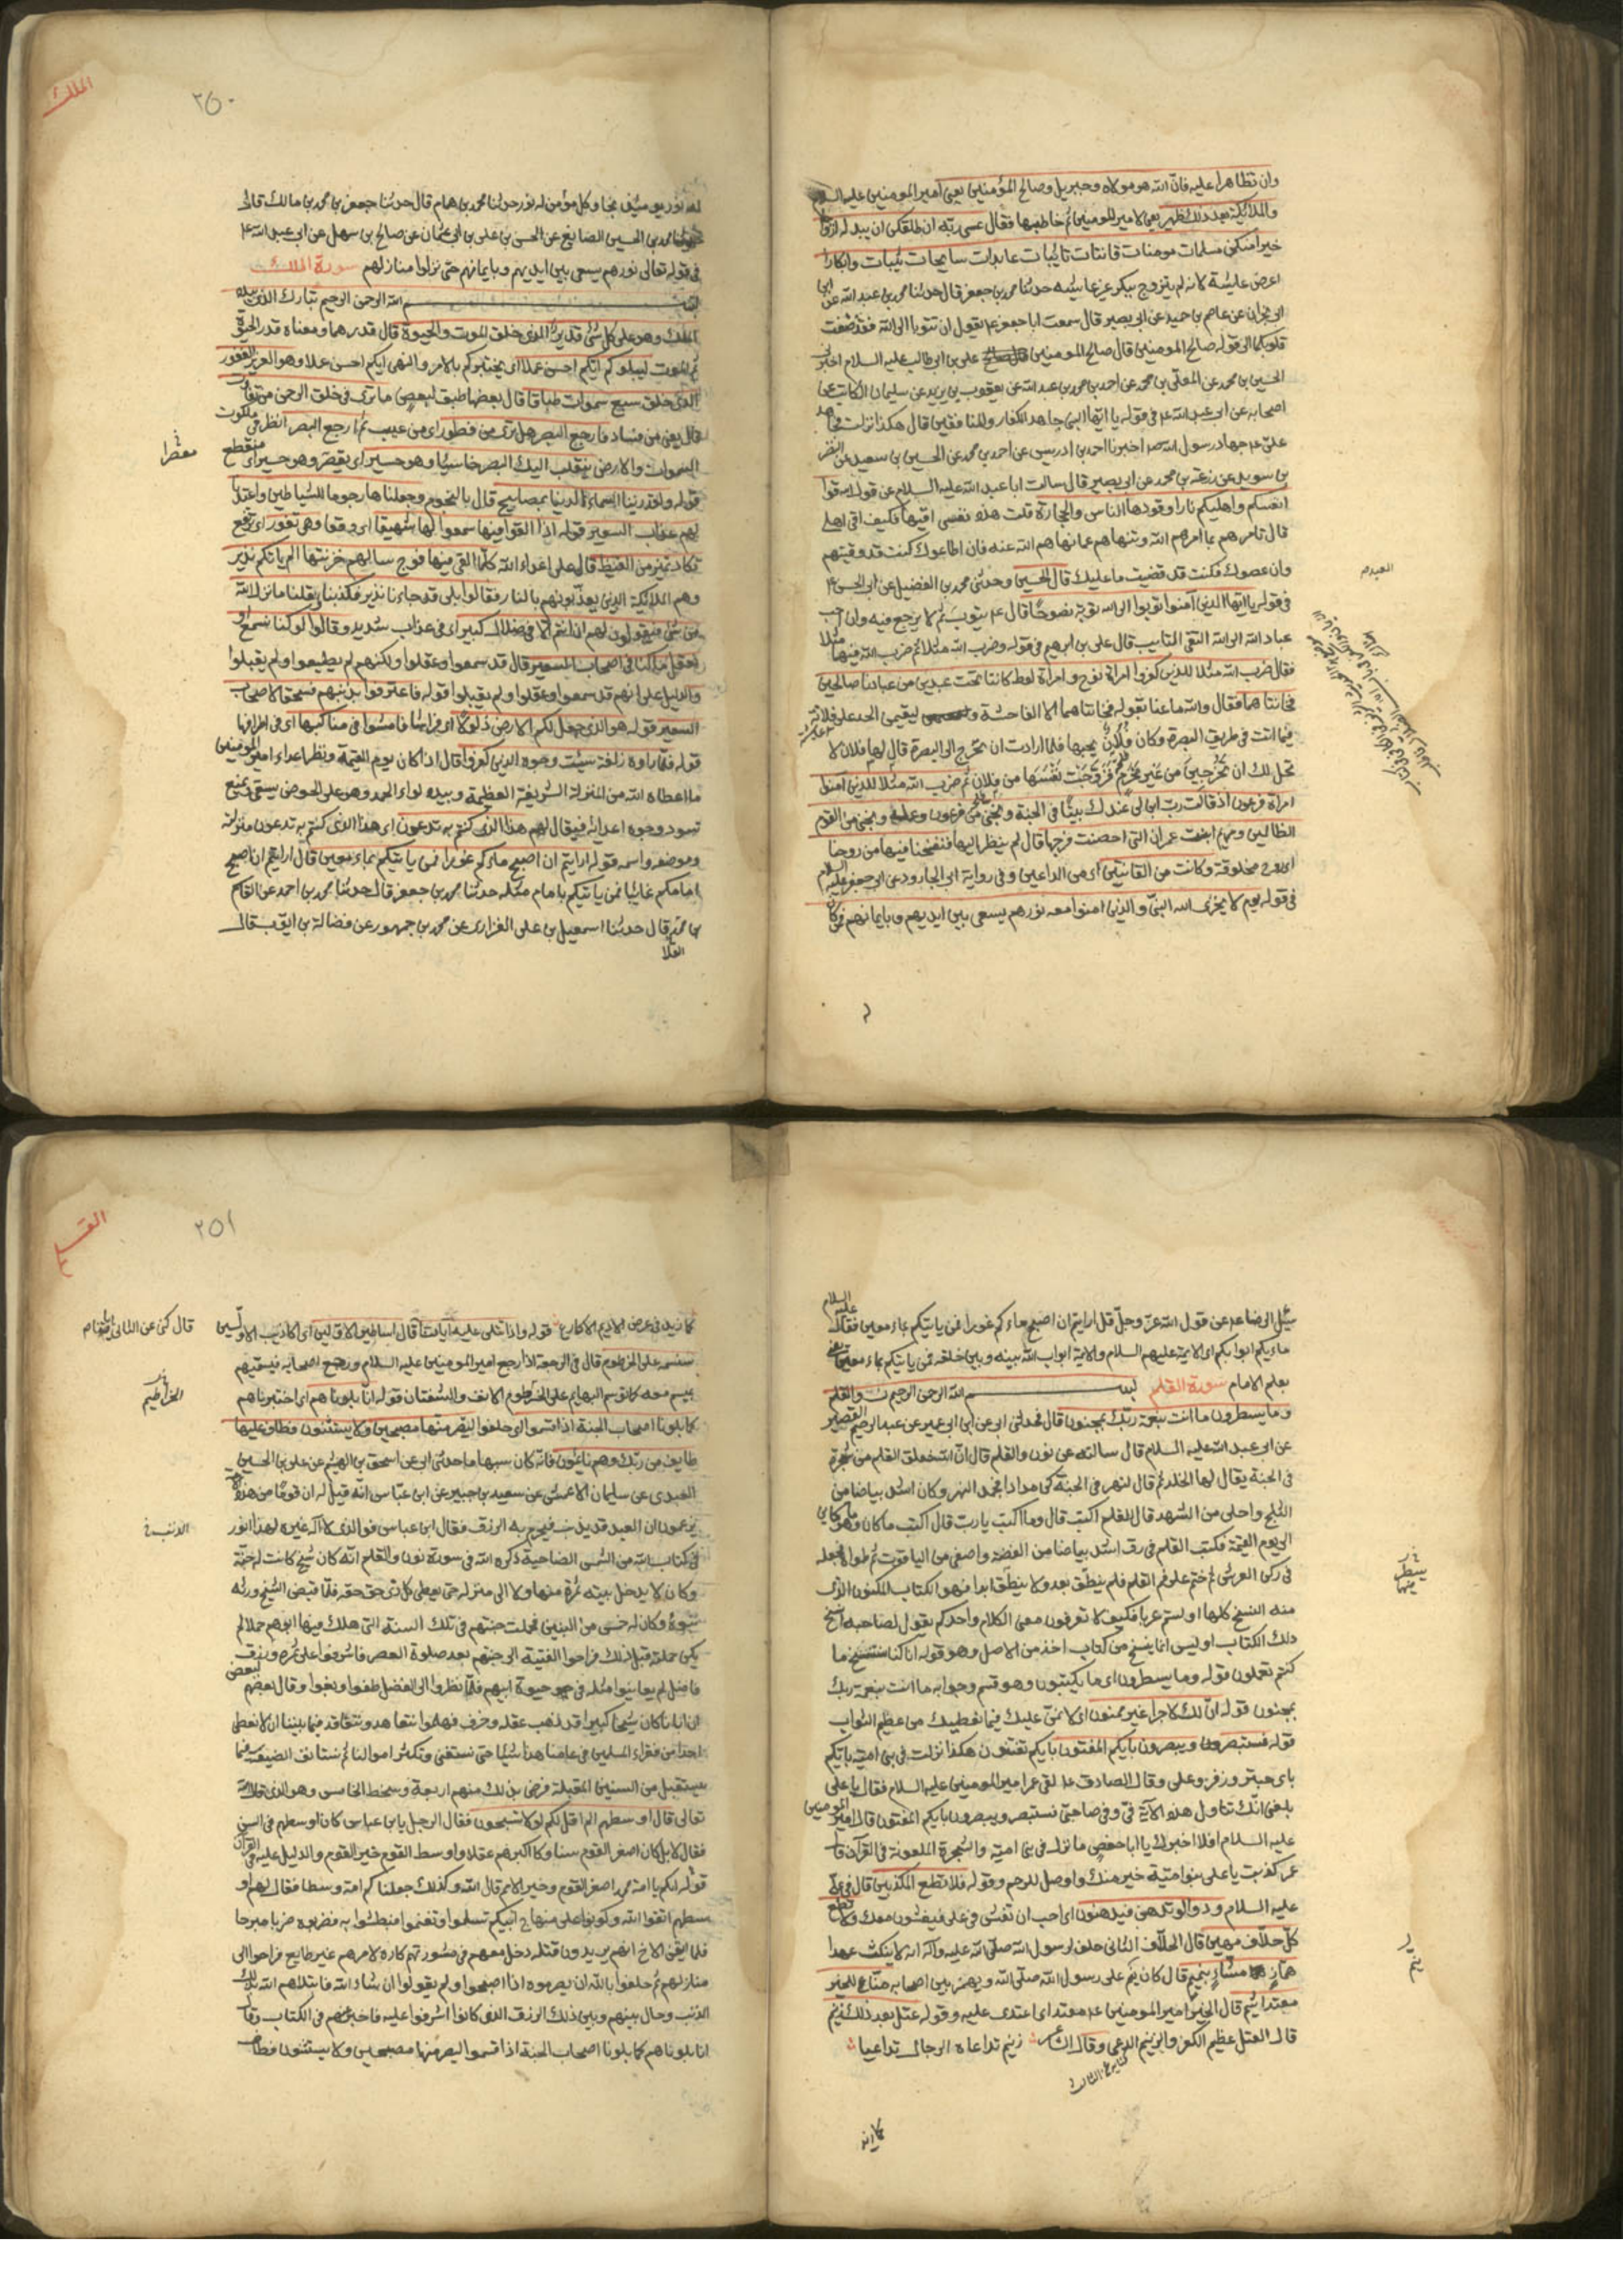 وان تظاهرا عليه فان الله هو مولاه وجبريل وصالح المؤمنين يعني امير المومنين عليه السلام
والملائكة بعد ذلك ظهير يعني لامير المومنين ثم خاطبها فقال عسى ربه ان طلقكن ان يبدله ازواجا
خيرا منكن مسلمات مومنات قانتات تائبات عابدات سايحات ثيبات وابكارا
اعرض عايشة لانه لم يتزوج ببكر غير عايشه حدثنا محمد بن جعفر قال حدثنا محمد بن عبد الله عن ابن
ابي نجران عن عاصم بن حميد عن ابي بصير قال سمعت ابا جعفر ع يقول ان تتوبا الى الله فقد صغت
قلوبكما الى قوله صالح المومنين قال صالح المومنين علي بن ابي طالب عليه السلام اخبرني
الحسين بن محمد عن المعلى بن محمد عن احمد بن محمد بن عبد الله عن يعقوب بن يزيد عن سليمان الكاتب عن
اصحابه عن ابي عبد الله ع في قوله يا ايها النبي جاهد الكفار والمنافقين قال هكذا نزلت فجاهد
علي ع جهاد رسول الله ص اخبرنا احمد بن ادريس عن احمد بن محمد عن الحسين بن سعيد عن النضر
بن سويد عن زرعة بن محمد عن ابي بصير قال سالت ابا عبد الله عليه السلام عن قول الله قوا
انفسكم واهليكم نارا وقودها الناس والحجارة قلت هذه نفسي اقيها فكيف اقي اهلي
قال تامرهم بما امرهم الله وتنهاهم عما نهاهم الله عنه فان اطاعوك كنت قد وقيتهم
وان عصوك فكنت قد قضيت ما عليك قال الحسين وحدثني محمد بن الفضيل عن ابي الحسن ع
في قوله يا ايها الذين امنوا توبوا الى الله توبة نصوحا قال ع يتوب ثم لا يرجع فيه وان احب
عباد الله الى الله التقي التايب قال علي بن ابرهيم في قوله وضرب الله مثلا ثم ضرب الله فيها مثلا
فقال ضرب الله مثلا للذين كفروا امراة نوح وامراة لوط كانتا تحت عبدين من عبادنا صالحين
فخانتاهما فقال والله ما عنا بقوله فخانتاهما الا الفاحشة وليقيمن الحد على فلانة
فيما اتت في طريق البصرة وكان فلان يحبها فلما ارادت ان تخرج الى البصرة قال لها فلان لا
تحل لك ان تخرجين من غير محرم فزوجت نفسها من فلان ثم ضرب الله مثلا للذين امنوا
امراة فرعون اذ قالت رب ابن لي عندك بيتا في الجنة ونجني من فرعون وعمله ونجني من القوم
الظالمين ومريم ابنت عمران التي احصنت فرجها قال لم ينظر اليها فنفخنا فيها من روحنا
اي روح مخلوقة وكانت من القانتين اي من الداعين وفي رواية ابي الجارود عن ابي جعفر عليه السلام
في قوله يوم لا يخزي الله النبي والذين امنوا معه نورهم يسعى بين ايديهم وبايمانهم فمن كان
الملك
٢٥٠
له نور يومئذ نجا وكل مؤمن له نور حدثنا محمد بن همام قال حدثنا جعفر بن محمد بن مالك قال
حدثنا محمد بن الحسين الصايغ عن الحسن بن علي بن ابي عثمان عن صالح بن سهل عن ابي عبد الله ع
في قوله تعالى نورهم يسعى بين ايديهم وبايمانهم حتى نزلوا منازلهم سورة الملك
بسم الله الرحمن الرحيم تبارك الذي بيده
الملك وهو على كل شئ قدير الذي خلق الموت والحيوة قال قدرهما ومعناه قدر الحيوة
ثم الموت ليبلوكم ايكم احسن عملا اي يختبركم بالامر والنهي ايكم احسن عملا وهو العزيز الغفور
الذي خلق سبع سموات طباقا قال بعضها طبق لبعض ما ترى في خلق الرحمن من تفاوت
قال يعني من فساد فارجع البصر هل ترى من فطور اي من عيب ثم ارجع البصر انظر في ملكوت
السموات والارض ينقلب اليك البصر خاسئا وهو حسير اي يقصر وهو حسير اي منقطع
قوله ولقد زينا السماء الدنيا بمصابيح قال بالنجوم وجعلناها رجوما للشياطين واعتدنا
لهم عذاب السعير قوله اذا القوا فيها سمعوا لها شهيقا اي وقعا وهي تفور اي ترتفع
تكاد تميز من الغيظ قال على اعداء الله كلما القي فيها فوج سالهم خزنتها الم ياتكم نذير
وهم الملائكة الذين يعذبونهم بالنار فقالوا بلى قد جاءنا نذير فكذبنا وقلنا ما نزل الله
من شئ فيقولون لهم ان انتم الا في ضلال كبير اي في عذاب شديد وقالوا لو كنا نسمع او
نعقل ما كنا في اصحاب السعير قال قد سمعوا وعقلوا ولكنهم لم يطيعوا ولم يقبلوا
والدليل على انهم قد سمعوا وعقلوا ولم يقبلوا قوله فاعترفوا بذنبهم فسحقا لاصحاب
السعير قوله هو الذي جعل لكم الارض ذلولا اي فراشا فامشوا في مناكبها اي في اطرافها
قوله فلما راوه زلفة سيئت وجوه الذين كفروا قال اذا كان يوم القيمة ونظر اعداء امير المومنين
ما اعطاه الله من المنزلة الشريفة العظيمة وبيده لواء الحمد وهو على الحوض يسقي ويمنع
تسود وجوه اعدائه فيقال لهم هذا الذي كنتم به تدعون اي هذا الذي كنتم به تدعون منزلته
وموضعه واسمه قوله ارايتم ان اصبح ماءكم غورا فمن ياتيكم بماء معين قال ارايتم ان اصبح
امامكم غائبا فمن ياتيكم بامام مثله حدثنا محمد بن جعفر قال حدثنا محمد بن احمد عن القاسم
بن محمد قال حدثنا اسمعيل بن علي الفزاري عن محمد بن جمهور عن فضالة بن ايوب قال
سئل الرضا ع عن قول الله عز وجل قل ارايتم ان اصبح ماءكم غورا فمن ياتيكم بماء معين فقال عليه السلام
ماءكم ابوابكم اي الائمة عليهم السلام والائمة ابواب الله بينه وبين خلقه فمن ياتيكم بماء معين يعني
بعلم الامام سورة القلم بسم الله الرحمن الرحيم ن والقلم
وما يسطرون ما انت بنعمة ربك بمجنون قال فحدثني ابي عن ابن ابي عمير عن عبد الرحيم القصير
عن ابي عبد الله عليه السلام قال سالته عن نون والقلم قال ان الله خلق القلم من شجرة
في الجنة يقال لها الخلد ثم قال لنهر في الجنة كن مدادا فجمد النهر وكان اشد بياضا من
الثلج واحلى من الشهد قال للقلم اكتب قال وما اكتب يا رب قال اكتب ما كان وما هو كاين
الى يوم القيمة فكتب القلم في رق اشد بياضا من الفضة واصفى من الياقوت ثم طواه فجعله
في ركن العرش ثم ختم على فم القلم فلم ينطق بعد ولا ينطق ابدا فهو الكتاب المكنون الذي
منه النسخ كلها اولستم عربا فكيف لا تعرفون معنى الكلام واحدكم يقول لصاحبه انسخ
ذلك الكتاب اوليس انما ينسخ من كتاب اخذ من الاصل وهو قوله انا كنا نستنسخ ما
كنتم تعملون قوله وما يسطرون اي ما يكتبون وهو قسم وجوابه ما انت بنعمة ربك
بمجنون قوله ان لك لاجرا غير ممنون اي لا نمن عليك فيما نعطيك من عظيم الثواب
قوله فستبصرون ويبصرون بايكم المفتون بايكم تفتنون هكذا نزلت في بني امية بايكم
باي حبتر وزفر وعلي وقال الصادق ع لقي عمر امير المومنين عليه السلام فقال يا علي
بلغني انك تتاول هذه الآية في وفي صاحبي فستبصر ويبصرون بايكم المفتون قال امير المومنين
عليه السلام افلا اخبرك يا ابا حفص ما نزل في بني امية والشجرة الملعونة في القرآن قال
عمر كذبت يا علي بنو امية خير منك واوصل للرحم وقوله فلا تطع المكذبين قال في علي
عليه السلام ودوا لو تدهن فيدهنون اي احب ان تغش في علي فيغشون معك ولا تطع
كل حلاف مهين قال الحلاف الثاني حلف لرسول الله صلى الله عليه وآله انه لا ينكث عهدا
هماز مشاء بنميم قال كان ينم على رسول الله صلى الله ويهمز بين اصحابه مناع للخير
معتد اثيم قال الخير امير المومنين ع معتد اي اعتدى عليه وقوله عتل بعد ذلك زنيم
قال العتل عظيم الكفر والزنيم الدعي وقال الشاعر زنيم تداعاه الرجال تداعيا
القلم
٢٥١
كما زيد في عرض الاديم الاكارع قوله واذا تتلى عليه آياتنا قال اساطير الاولين اي اكاذيب الاولين
سنسمه على الخرطوم قال في الرجعة اذا رجع امير المومنين عليه السلام ورجع اصحابه فيسمهم
بميسم معه كما توسم البهائم على الخرطوم الانف والشفتان قوله انا بلوناهم اي اختبرناهم
كما بلونا اصحاب الجنة اذ اقسموا اي حلفوا ليصرمنها مصبحين ولا يستثنون فطاف عليها
طايف من ربك وهم نائمون فانه كان سببها ما حدثني ابي عن اسحق بن الهيثم عن علي بن الحسين
العبدي عن سليمان الاعمش عن سعيد بن جبير عن ابن عباس انه قيل له ان قوما من هذه
يزعمون ان العبد قد يذنب فيحرم به الرزق فقال ابن عباس فوالذي لا اله غيره لهذا انور
في كتاب الله من الشمس الضاحية ذكره الله في سورة نون والقلم انه كان شيخ كانت له جنة
وكان لا يدخل بيته ثمرة منها ولا الى منزله حتى يعطي كل ذي حق حقه فلما قبض الشيخ ورثه
بنوه وكان له خمس من البنين فحملت جنتهم في تلك السنة التي هلك فيها ابوهم حملا لم
يكن حملته قبل ذلك فراحوا الفتية الى جنتهم بعد صلوة العصر فاشرفوا على ثمره ورزق
فاضل لم يعاينوا مثله في حيوة ابيهم فلما نظروا الى الفضل طغوا وبغوا وقال بعضهم لبعض
ان ابانا كان شيخا كبيرا قد ذهب عقله وخرف فهلموا نتعاهد ونتعاقد فيما بيننا ان لا نعطي
احدا من فقراء المسلمين في عامنا هذا شيئا حتى نستغني وتكثر اموالنا ثم نستانف الصنيعة فيما
يستقبل من السنين المقبلة فرضي بذلك منهم اربعة وسخط الخامس وهو الذي قال الله
تعالى قال اوسطهم الم اقل لكم لولا تسبحون فقال الرجل يا بن عباس كان اوسطهم في السن
فقال لا بل كان اصغر القوم سنا وكان اكبرهم عقلا واوسط القوم خير القوم والدليل عليه في القرآن
قوله انكم يا امة محمد اصغر القوم وخير الامم قال الله وكذلك جعلناكم امة وسطا فقال لهم او
سطهم اتقوا الله وكونوا على منهاج ابيكم تسلموا وتغنموا فبطشوا به فضربوه ضربا مبرحا
فلما ايقن الاخ انهم يريدون قتله دخل معهم في مشورتهم كاره لامرهم غير طايع فراحوا الى
منازلهم ثم حلفوا بالله ان يصرموه اذا اصبحوا ولم يقولوا ان شاء الله فابتلاهم الله بذلك
الذنب وحال بينهم وبين ذلك الرزق الذي كانوا اشرفوا عليه فاخبر عنهم في الكتاب وقال
انا بلوناهم كما بلونا اصحاب الجنة اذ اقسموا ليصرمنها مصبحين ولا يستثنون فطاف